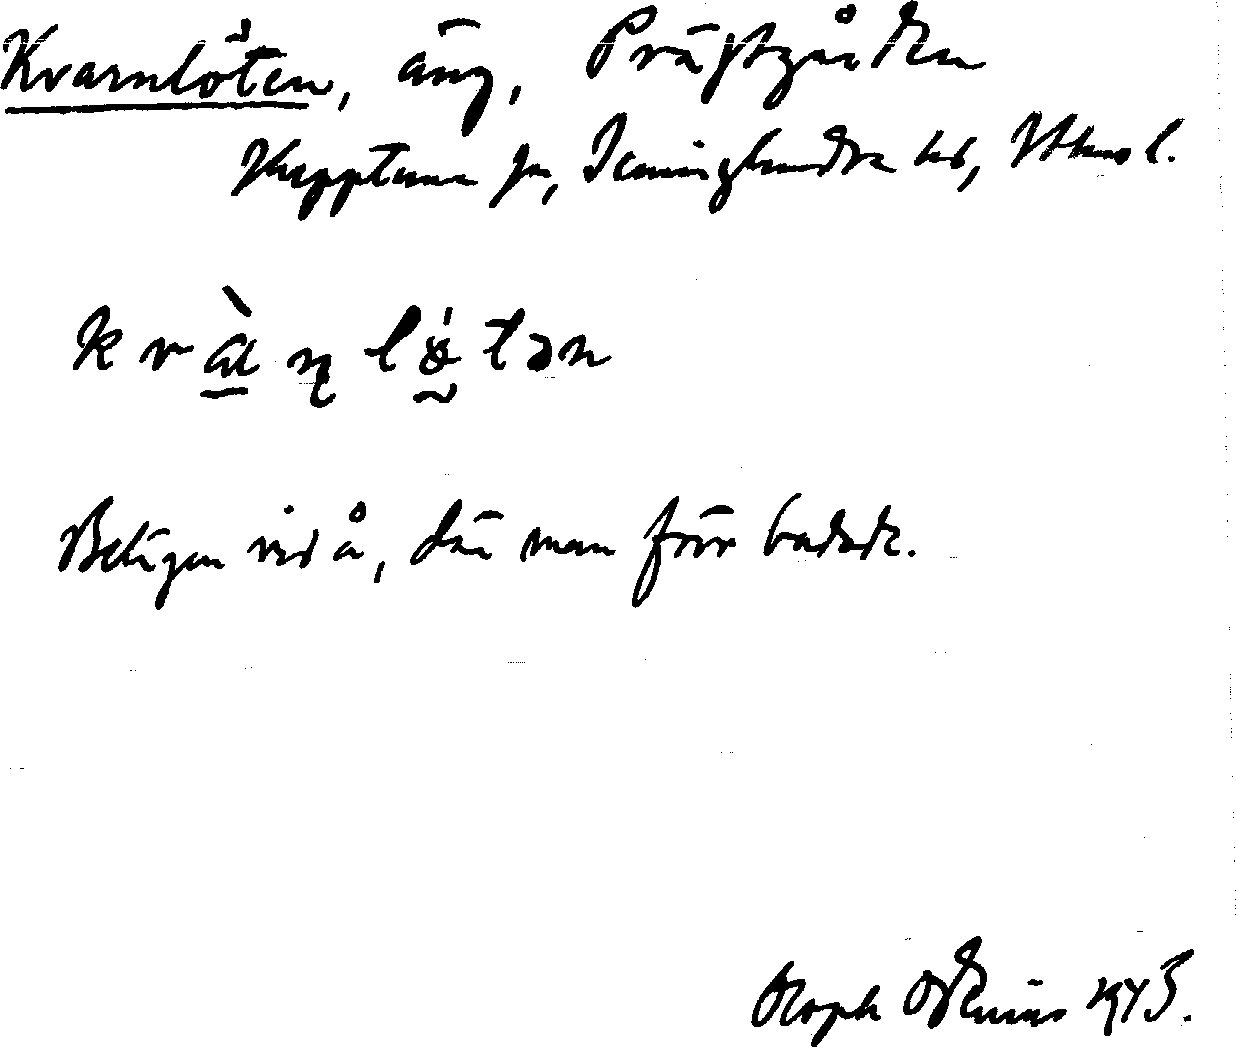 Kvarnlöten, äng, Prästgården
Skepptuna sn, Seminghundra hd, Sthms l.
kvà̱ɳlö̰́tən
Belägen vid å, där man förr badade.
Oloph Odenius 1943.